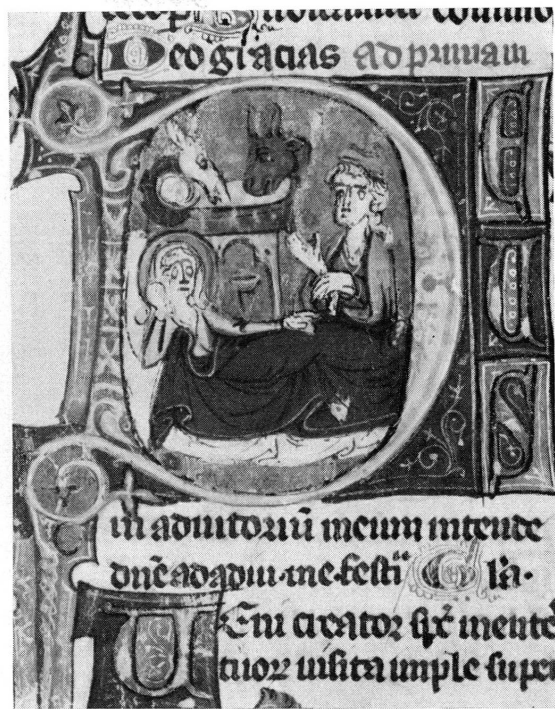 Deo gracias ad primam
DEUS
in adiutoriū meum intende
dn̄e ad adiu me festi Gl̄a
Veni creator sp̄c mente
tuorꝝ uisita imple super